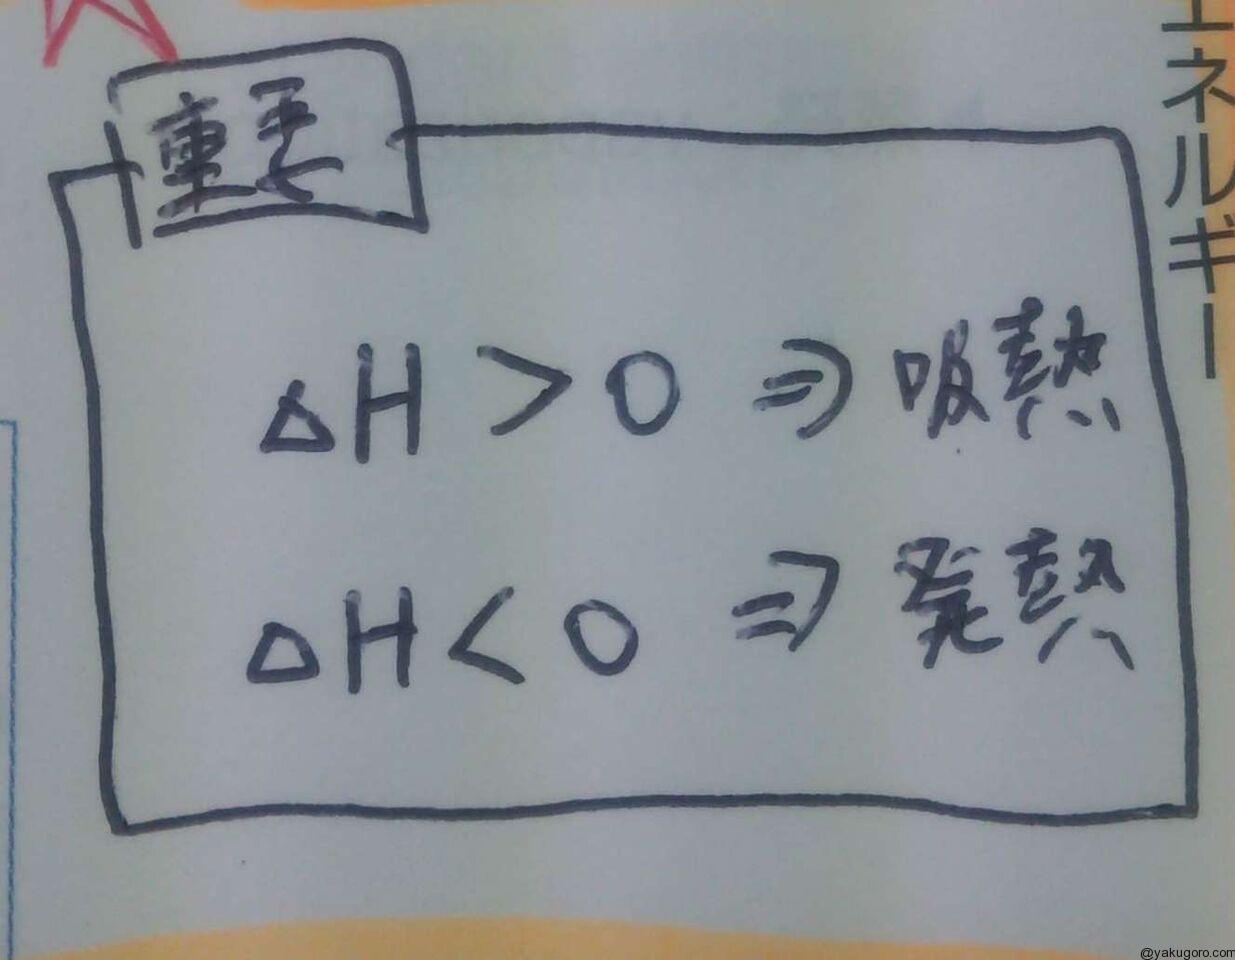 重要
ΔH > 0 ⇒ 吸熱
ΔH < 0 ⇒ 発熱
エネルギー
@yakugoro.com